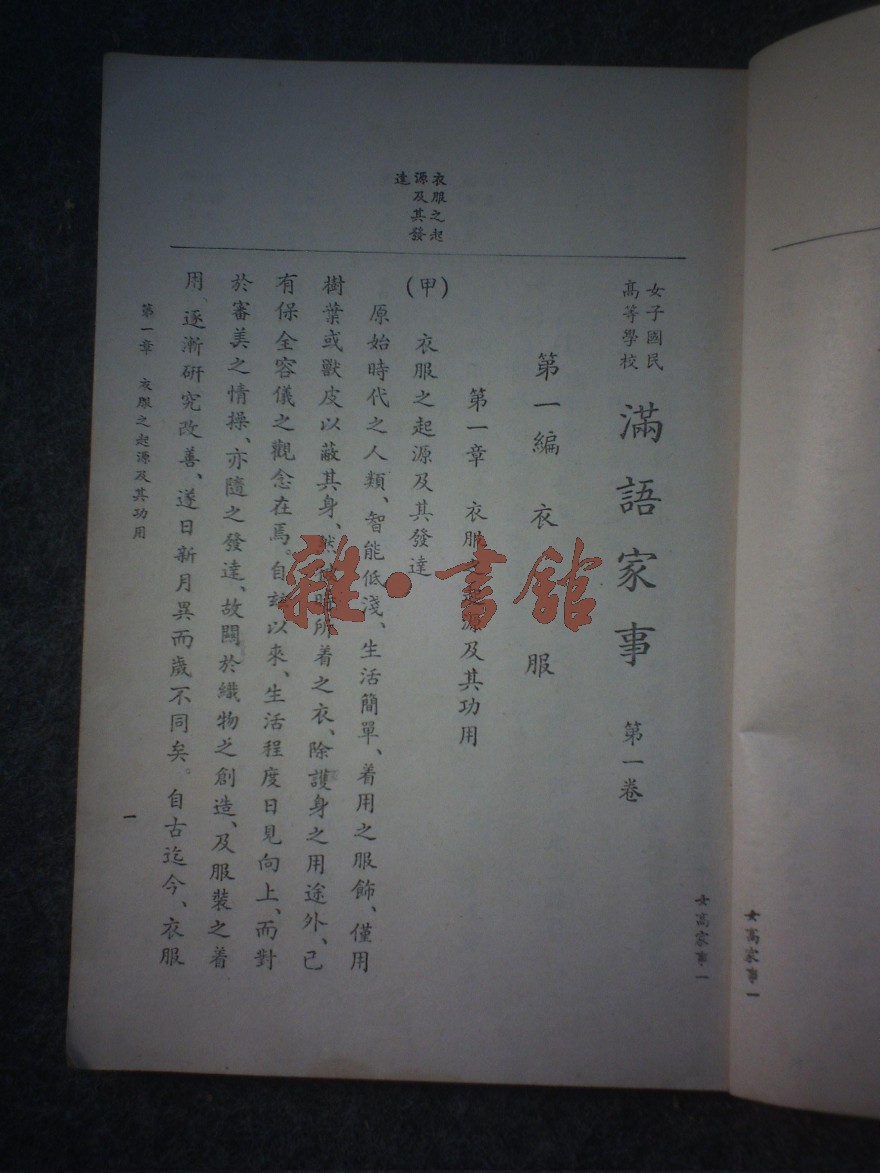 女子國民
高等學校
滿語家事 第一卷
第一編 衣服
第一章 衣服之起源及其功用
衣服之起
源及其發
達
(甲) 衣服之起源及其發達
原始時代之人類、智能低淺、生活簡單、着用之服飾、僅用
樹葉或獸皮以蔽其身、然 時所着之衣、除護身之用途外、已
有保全容儀之觀念在焉。自玆以來、生活程度日見向上、而對
於審美之情操、亦隨之發達、故關於織物之創造、及服裝之着
用、逐漸研究改善、遂日新月異而歲不同矣。自古迄今、衣服
第一章 衣服之起源及其功用
一
女高家事一
女高家事一
雜·書館